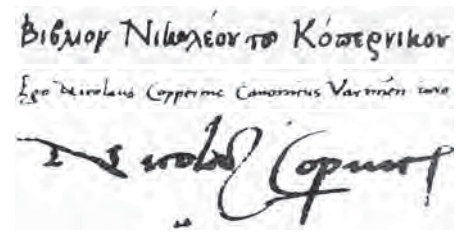 Βιβλίον Νικολέου τοῦ Κόπερνικου
Ego Nicolaus Coppernic Canonicus Varmien
Nicolaus Copernic